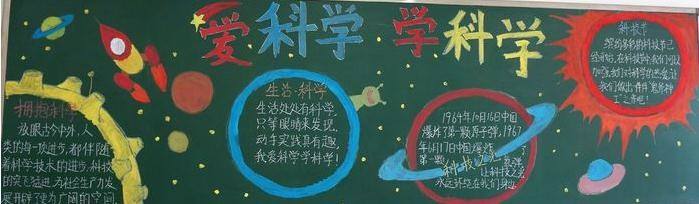 爱科学 学科学
拥抱科学
放眼古今中外,人
类的每一项进步,都伴随
着科学技术的进步。科技
的突飞猛进,为社会生产力发
展开辟了更为广阔的空间.
生活·科学
生活处处有科学,
只等眼睛来发现,
动手实践真有趣,
我爱科学学科学!
1964年10月16日中国
爆炸了第一颗原子弹,1967
年6月17日中国爆炸
了第一颗
科技之光
让科技之光
永远环绕在我们身边.
科技节
缤纷多彩的科技节已
经开始,在科技节中我们可以
加强我们对科学的热爱,让
我们做出
工之奇吧!